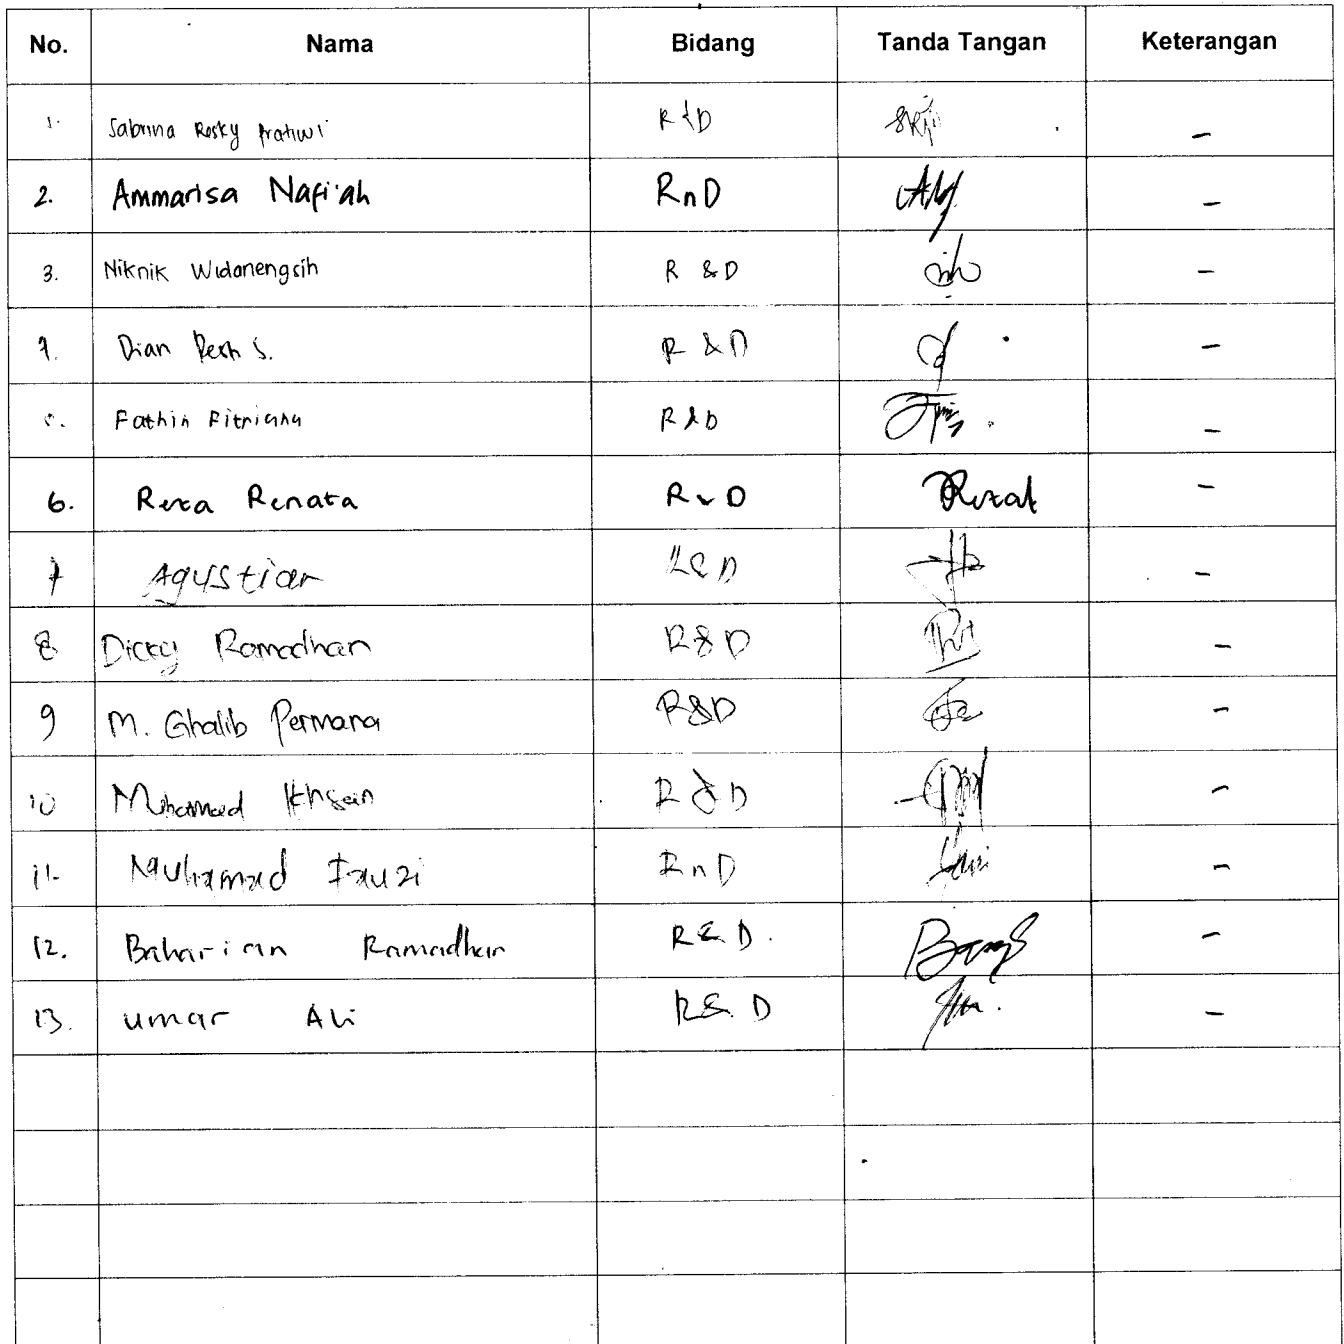 No. Nama Bidang Tanda Tangan Keterangan
1. Sabrina Rosky Pratiwi R&D -
2. Ammarisa Nafi'ah RnD -
3. Niknik Widanengsih R &D -
Dian S. R &D -
Fathin Fitriana R&D -
6. Reza Renata R&D -
7 Agustiar R&D -
8 Dicky Ramadhan R&D -
9 M. Ghalib Permana R&D -
10 Muhamad Ikhsan R&D -
11. Muhamad Fauzi RnD -
12. Baharian Ramadhan R&D. -
13. Umar Ali R&D -